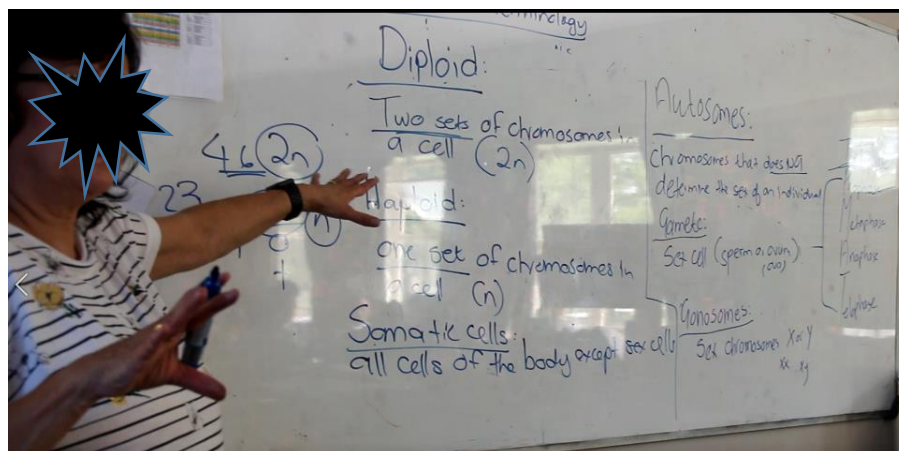 Terminology
Diploid:
Two sets of chromosomes in
a cell (2n)
46 2n
23
n
Haploid:
one set of chromosomes in
a cell (n)
Somatic cells:
all cells of the body except sex cells
Autosomes:
Chromosomes that does NOT
determine the sex of an individual
Gamete:
Sex cell (sperm or ovum
(ova)
Gonosomes:
Sex chromosomes X or Y
xx xy
Metaphase
Anaphase
Telophase